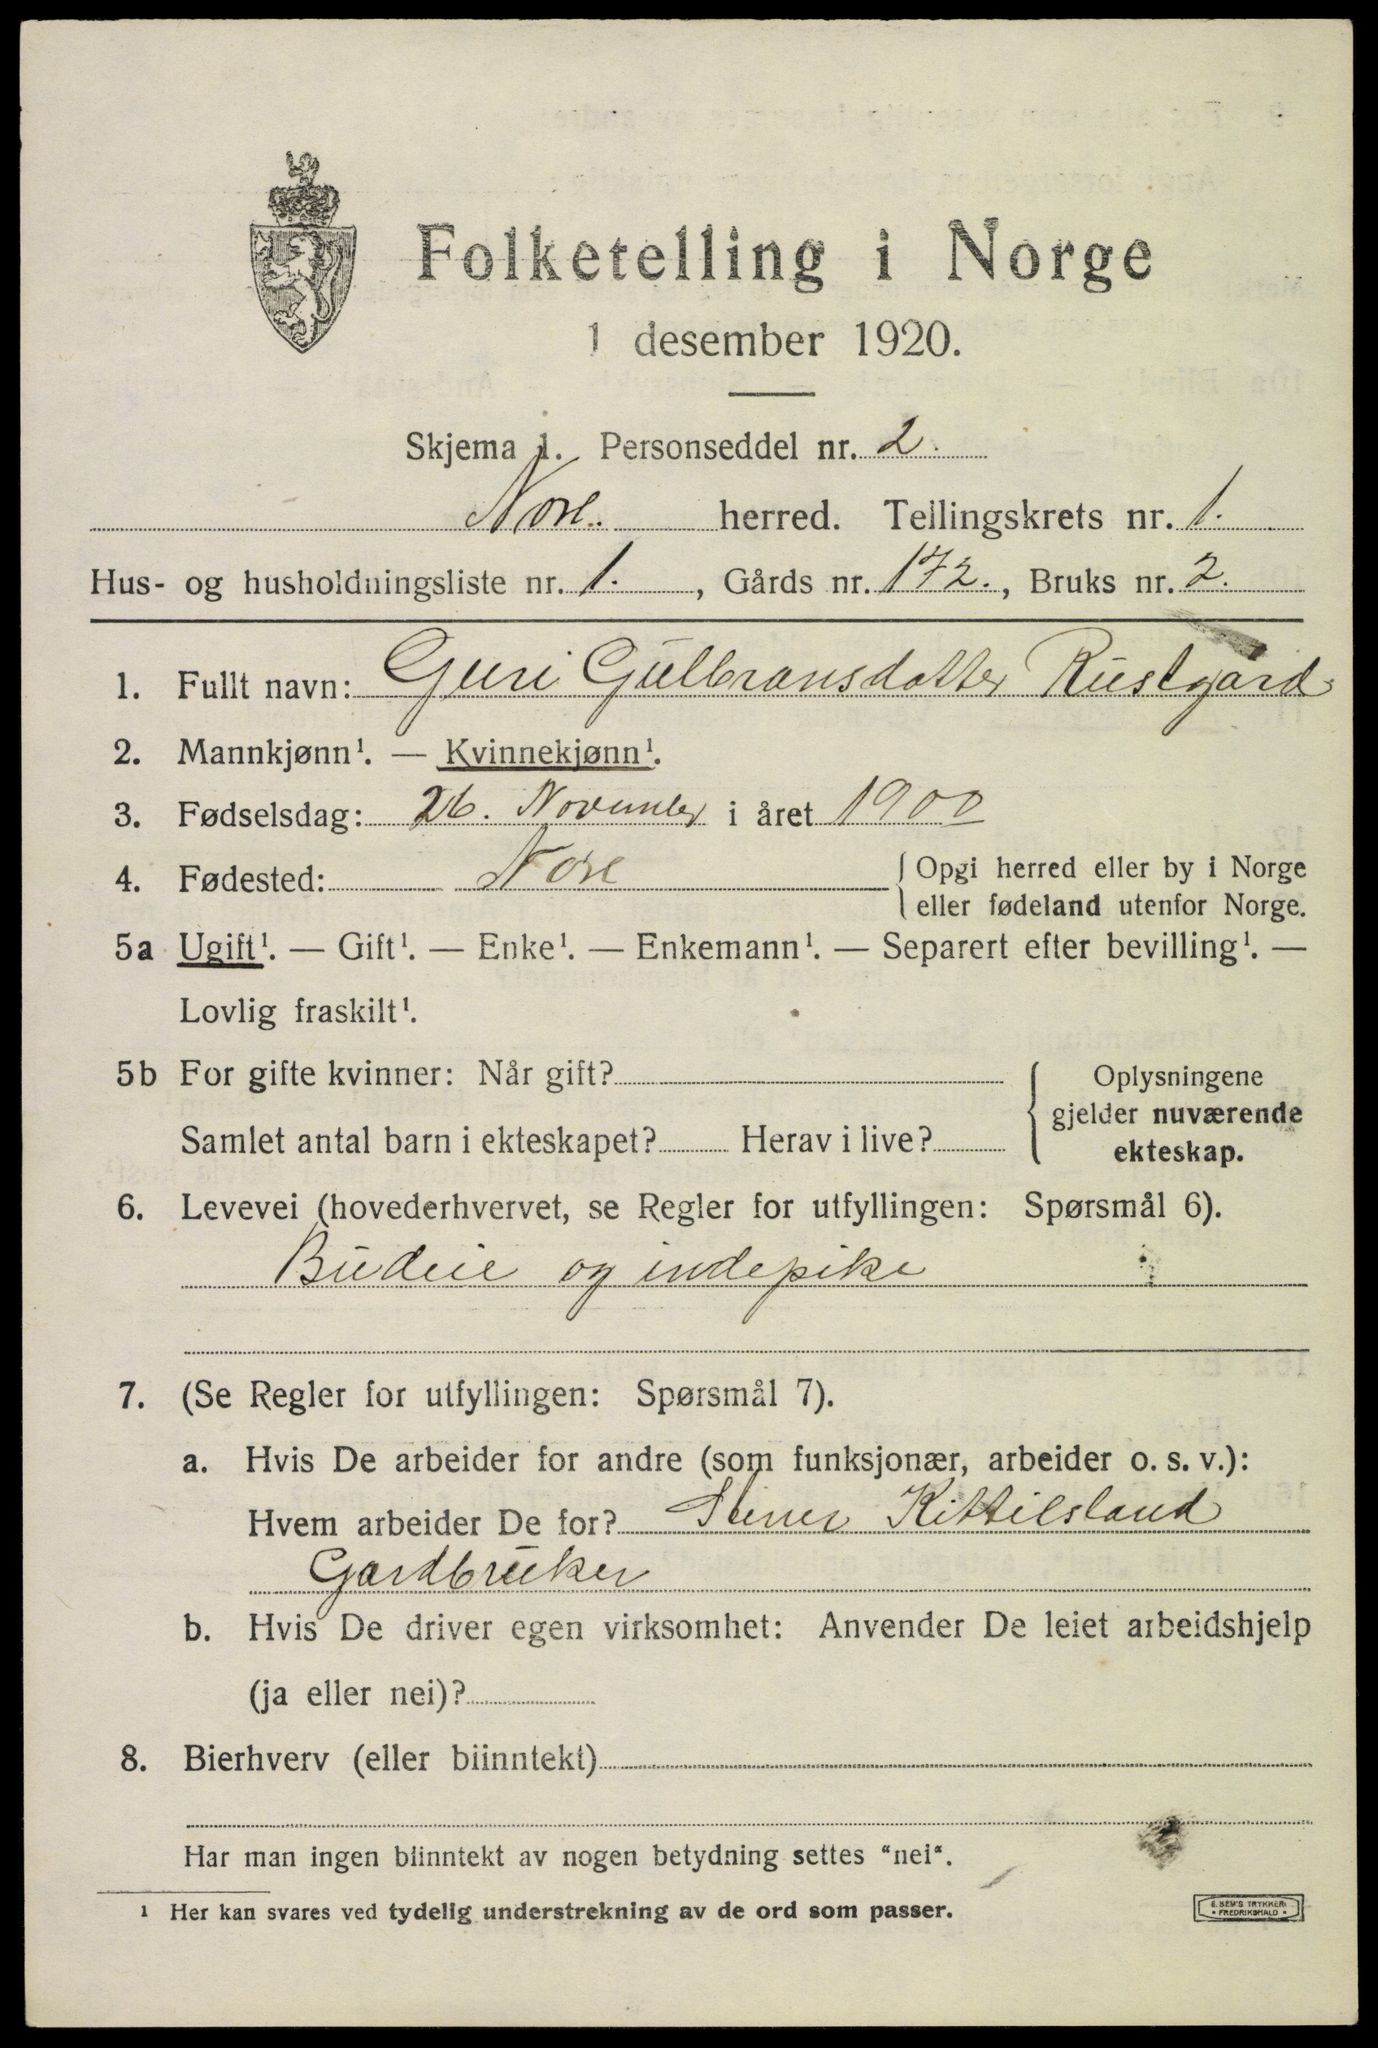 Folketelling i Norge
1 desember 1920.
Skjema 1. Personseddel nr. 2.
Nore. herred. Tellingskrets nr. 1.
Hus- og husholdningsliste nr. 1., Gårds nr. 172., Bruks nr. 2.
1. Fullt navn: Guri Gulbransdatter Rustgård
2. Mannkjønn¹. — Kvinnekjønn¹.
3. Fødselsdag: 26. November i året 1900
4. Fødested: Nore { Opgi herred eller by i Norge
eller fødeland utenfor Norge.
5a Ugift¹. — Gift¹. — Enke¹. — Enkemann¹. — Separert efter bevilling¹. —
Lovlig fraskilt¹.
5b For gifte kvinner: Når gift? { Oplysningene
gjelder nuværende
Samlet antal barn i ekteskapet? Herav i live?
ekteskap.
6. Levevei (hovederhvervet, se Regler for utfyllingen: Spørsmål 6).
Budeie og indepike
7. (Se Regler for utfyllingen: Spørsmål 7).
a. Hvis De arbeider for andre (som funksjonær, arbeider o. s. v.):
Hvem arbeider De for? Kittilsland
Gardbruker
b. Hvis De driver egen virksomhet: Anvender De leiet arbeidshjelp
(ja eller nei)?
8. Bierhverv (eller biinntekt)
Har man ingen biinntekt av nogen betydning settes "nei".
¹ Her kan svares ved tydelig understrekning av de ord som passer.
E. SEM'S TRYKKERI
• FREDRIKSHALD •